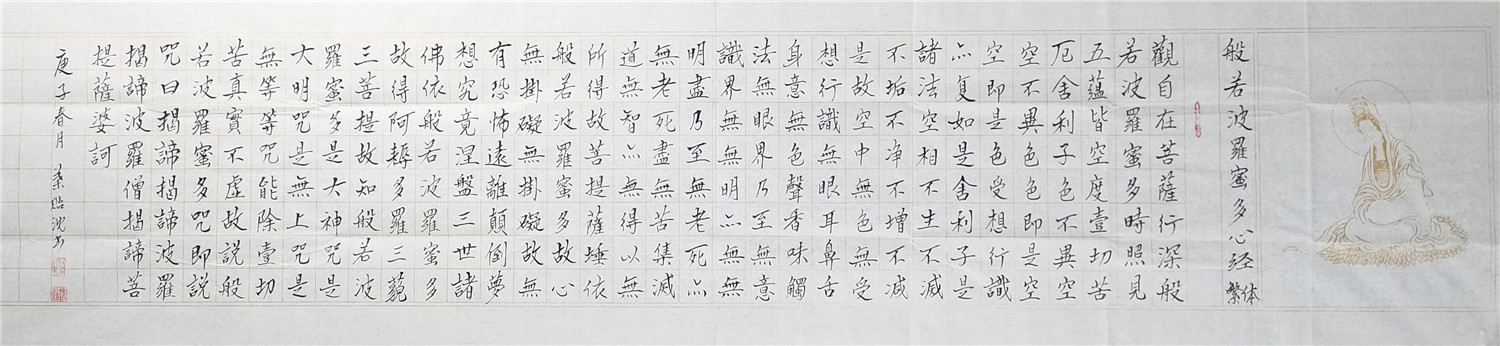 般若波羅蜜多心经
繁体
觀自在菩薩行深般
若波羅蜜多時照見
五蘊皆空度壹切苦
厄舍利子色不異空
空不異色色即是空
空即是色受想行識
亦复如是舍利子是
諸法空相不生不滅
不垢不净不增不減
是故空中無色無受
想行識無眼耳鼻舌
身意無色聲香味觸
法無眼界乃至無意
識界無無明亦無無
明盡乃至無老死亦
無老死盡無苦集滅
道無智亦無得以無
所得故菩提薩埵依
般若波羅蜜多故心
無掛礙無掛礙故無
有恐怖遠離顛倒夢
想究竟涅盤三世諸
佛依般若波羅蜜多
故得阿耨多羅三藐
三菩提故知般若波
羅蜜多是大神咒是
大明咒是無上咒是
無等等咒能除壹切
苦真實不虛故説般
若波羅蜜多咒即説
咒曰揭諦揭諦波羅
揭諦波羅僧揭諦菩
提薩婆訶
庚子春月